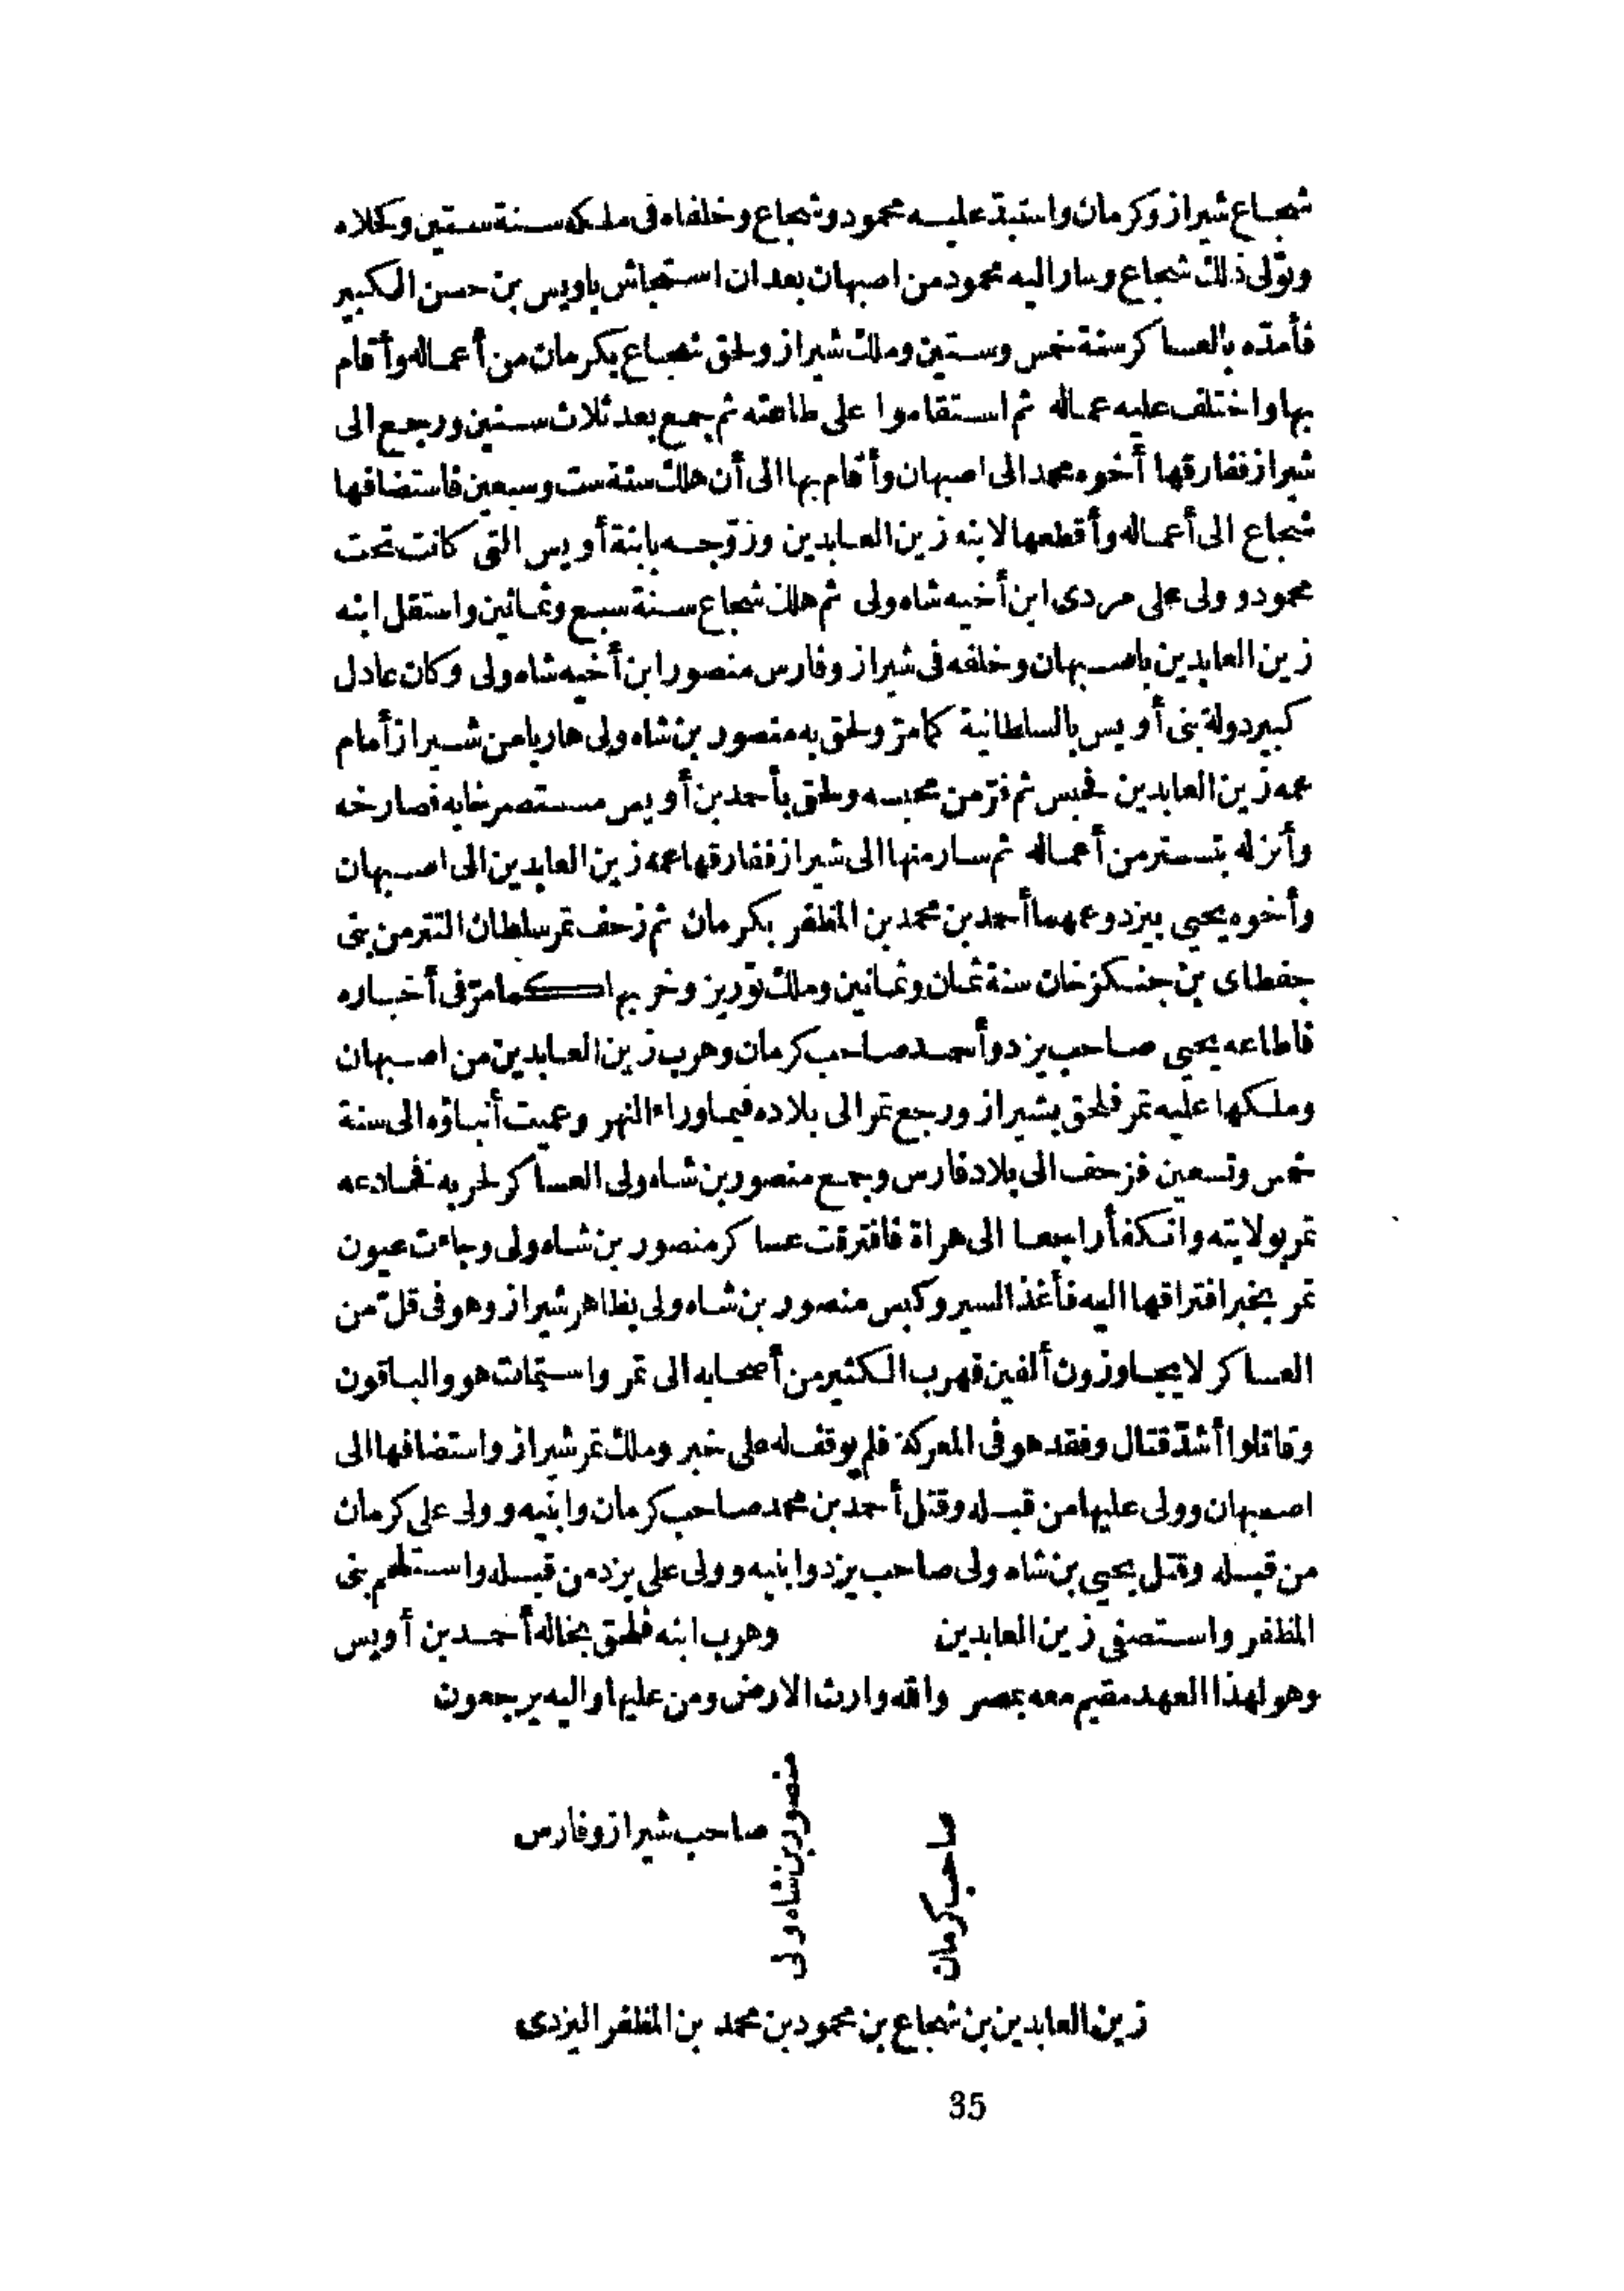 شجاع شيراز وكرمان واستبدّ عليه محمود وشجاع وخلفاه فى ملكه سنة ستين وكحلاه
وتولى ذلك شجاع وسار اليه محمود من اصبهان بعد ان استجاش باويس بن حسن الكبير
فأمدّه بالعساكر سنة خمس وستين وملك شيراز ولحق شجاع بكرمان من أعماله وأقام
بها واختلف عليه عماله ثم استقاموا على طاعته ثم جمع بعد ثلاث سنين ورجع الى
شيراز ففارقها أخوه محمد الى اصبهان وأقام بها الى أن هلك سنة ست وسبعين فاستضافها
شجاع الى أعماله وأقطعها لابنه زين العابدين وزوّجه بابنة أويس التى كانت تحت
محمود وولى على مردى ابن أخيه شاه ولى ثم هلك شجاع سنة سبع وثمانين واستقل ابنه
زين العابدين باصبهان وخلفه فى شيراز وفارس منصور ابن أخيه شاه ولى وكان عادل
كبير دولة بنى أويس بالسلطانية كما مرّ ولحق به منصور بن شاه ولى هاربا من شيراز أمام
عمه زين العابدين فحبس ثم فرّ من محبسه ولحق بأحمد بن أويس مستصرخا به فصارخه
وأنزله بتستر من أعماله ثم سار منها الى شيراز ففارقها عمه زين العابدين الى اصبهان
وأخوه يحيى بيزد وعمهما أحمد بن محمد بن المظفر بكرمان ثم زحف تمر سلطان التتر من بنى
جفطاى بن جنكزخان سنة ثمان وثمانين وملك توريز وخربها كما مرّ فى أخباره
فاطاعه يحيى صاحب يزد وأحمد صاحب كرمان وهرب زين العابدين من اصبهان
وملكها عليه تمر فلحق بشيراز ورجع تمر الى بلاده فيما وراء النهر وعميت أنباؤه الى سنة
خمس وتسعين فزحف الى بلاد فارس وجمع منصور بن شاه ولى العساكر لحربه فخادعه
تمر بولايته وانكفأ راجعا الى هراة فافترقت عساكر منصور بن شاه ولى وجاءت عيون
تمر بخبر افتراقها اليه فأغذ السير وكبس منصور بن شاه ولى بظاهر شيراز وهو فى قلّ من
العساكر لا يجاوزون ألفين فهرب الكثير من أصحابه الى تمر واستمات هو والباقون
وقاتلوا أشدّ قتال وفقد هو فى المعركة فلم يوقف له على خبر وملك تمر شيراز واستضافها الى
اصبهان وولى عليها من قبله وقتل أحمد بن محمد صاحب كرمان وابنيه وولى على كرمان
من قبله وقتل يحيى بن شاه ولى صاحب يزد وابنيه وولى على يزد من قبله واستلحم بنى
المظفر واستصفى زين العابدين وهرب ابنه فلحق بخاله أحمد بن أويس
وهو لهذا العهد مقيم معه بمصر والله وارث الارض ومن عليها واليه يرجعون
صاحب كرمان
منصور بن شاه ولى
صاحب شيراز وفارس
زين العابدين بن شجاع بن محمود بن محمد بن المظفر اليزدى
35